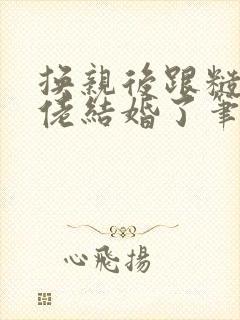 換親後跟糙
佬結婚了筆
心飛揚